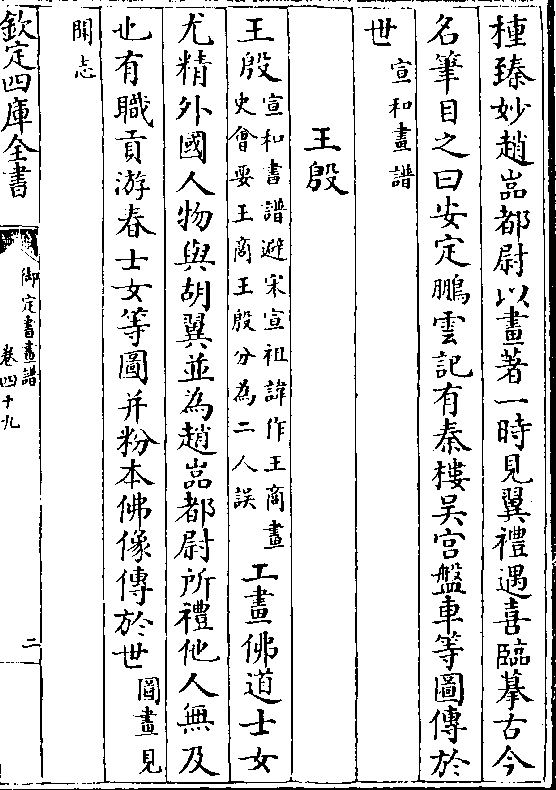 種臻妙趙嵓都尉以畫著一時見翼禮遇喜臨摹古今
名筆目之曰安定鵬雲記有秦樓吳宮盤車等圖傳於
世宣和畫譜
王殷
王殷宣和書譜避宋宣祖諱作王商畫史會要王商王殷分為二人誤工畫佛道士女
尤精外國人物與胡翼並為趙嵓都尉所禮他人無及
也有職貢游春士女等圖并粉本佛像傳於世圖畫見
聞志
欽定四庫全書
御定書畫譜
卷四十九
二